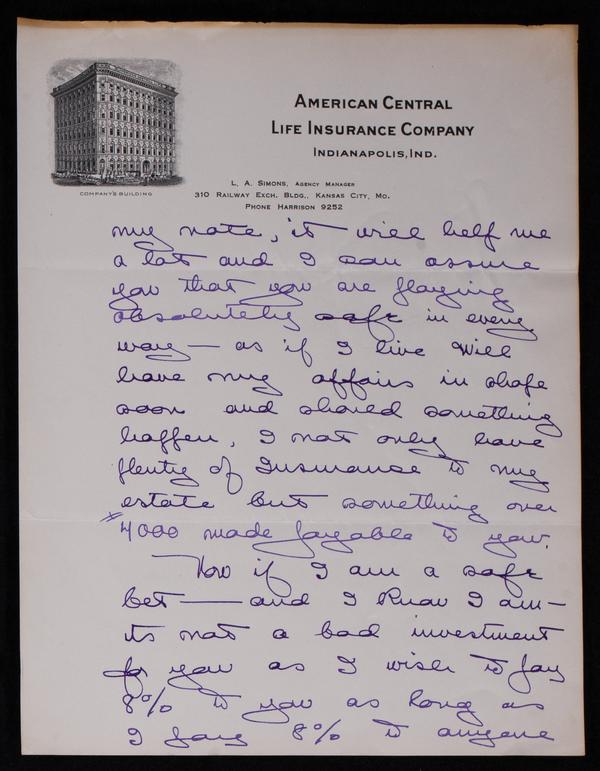 AMERICAN CENTRAL
LIFE INSURANCE COMPANY
INDIANAPOLIS, IND.
COMPANY'S BUILDING
L. A. SIMONS, AGENCY MANAGER
310 RAILWAY EXCH. BLDG., KANSAS CITY, MO.
PHONE HARRISON 9252
my note, it will help me
a lot and I can assure
you that you are playing
absolutely safe in every
way — as if I live will
have my affairs in shape
soon and should something
happen, I not only have
plenty of Insurance to my
estate but something over
$4000 made payable to you.
Now if I am a safe
bet — and I know I am —
its not a bad investment
for you as I wish to pay
8% to you as long as
I pay 8% to anyone